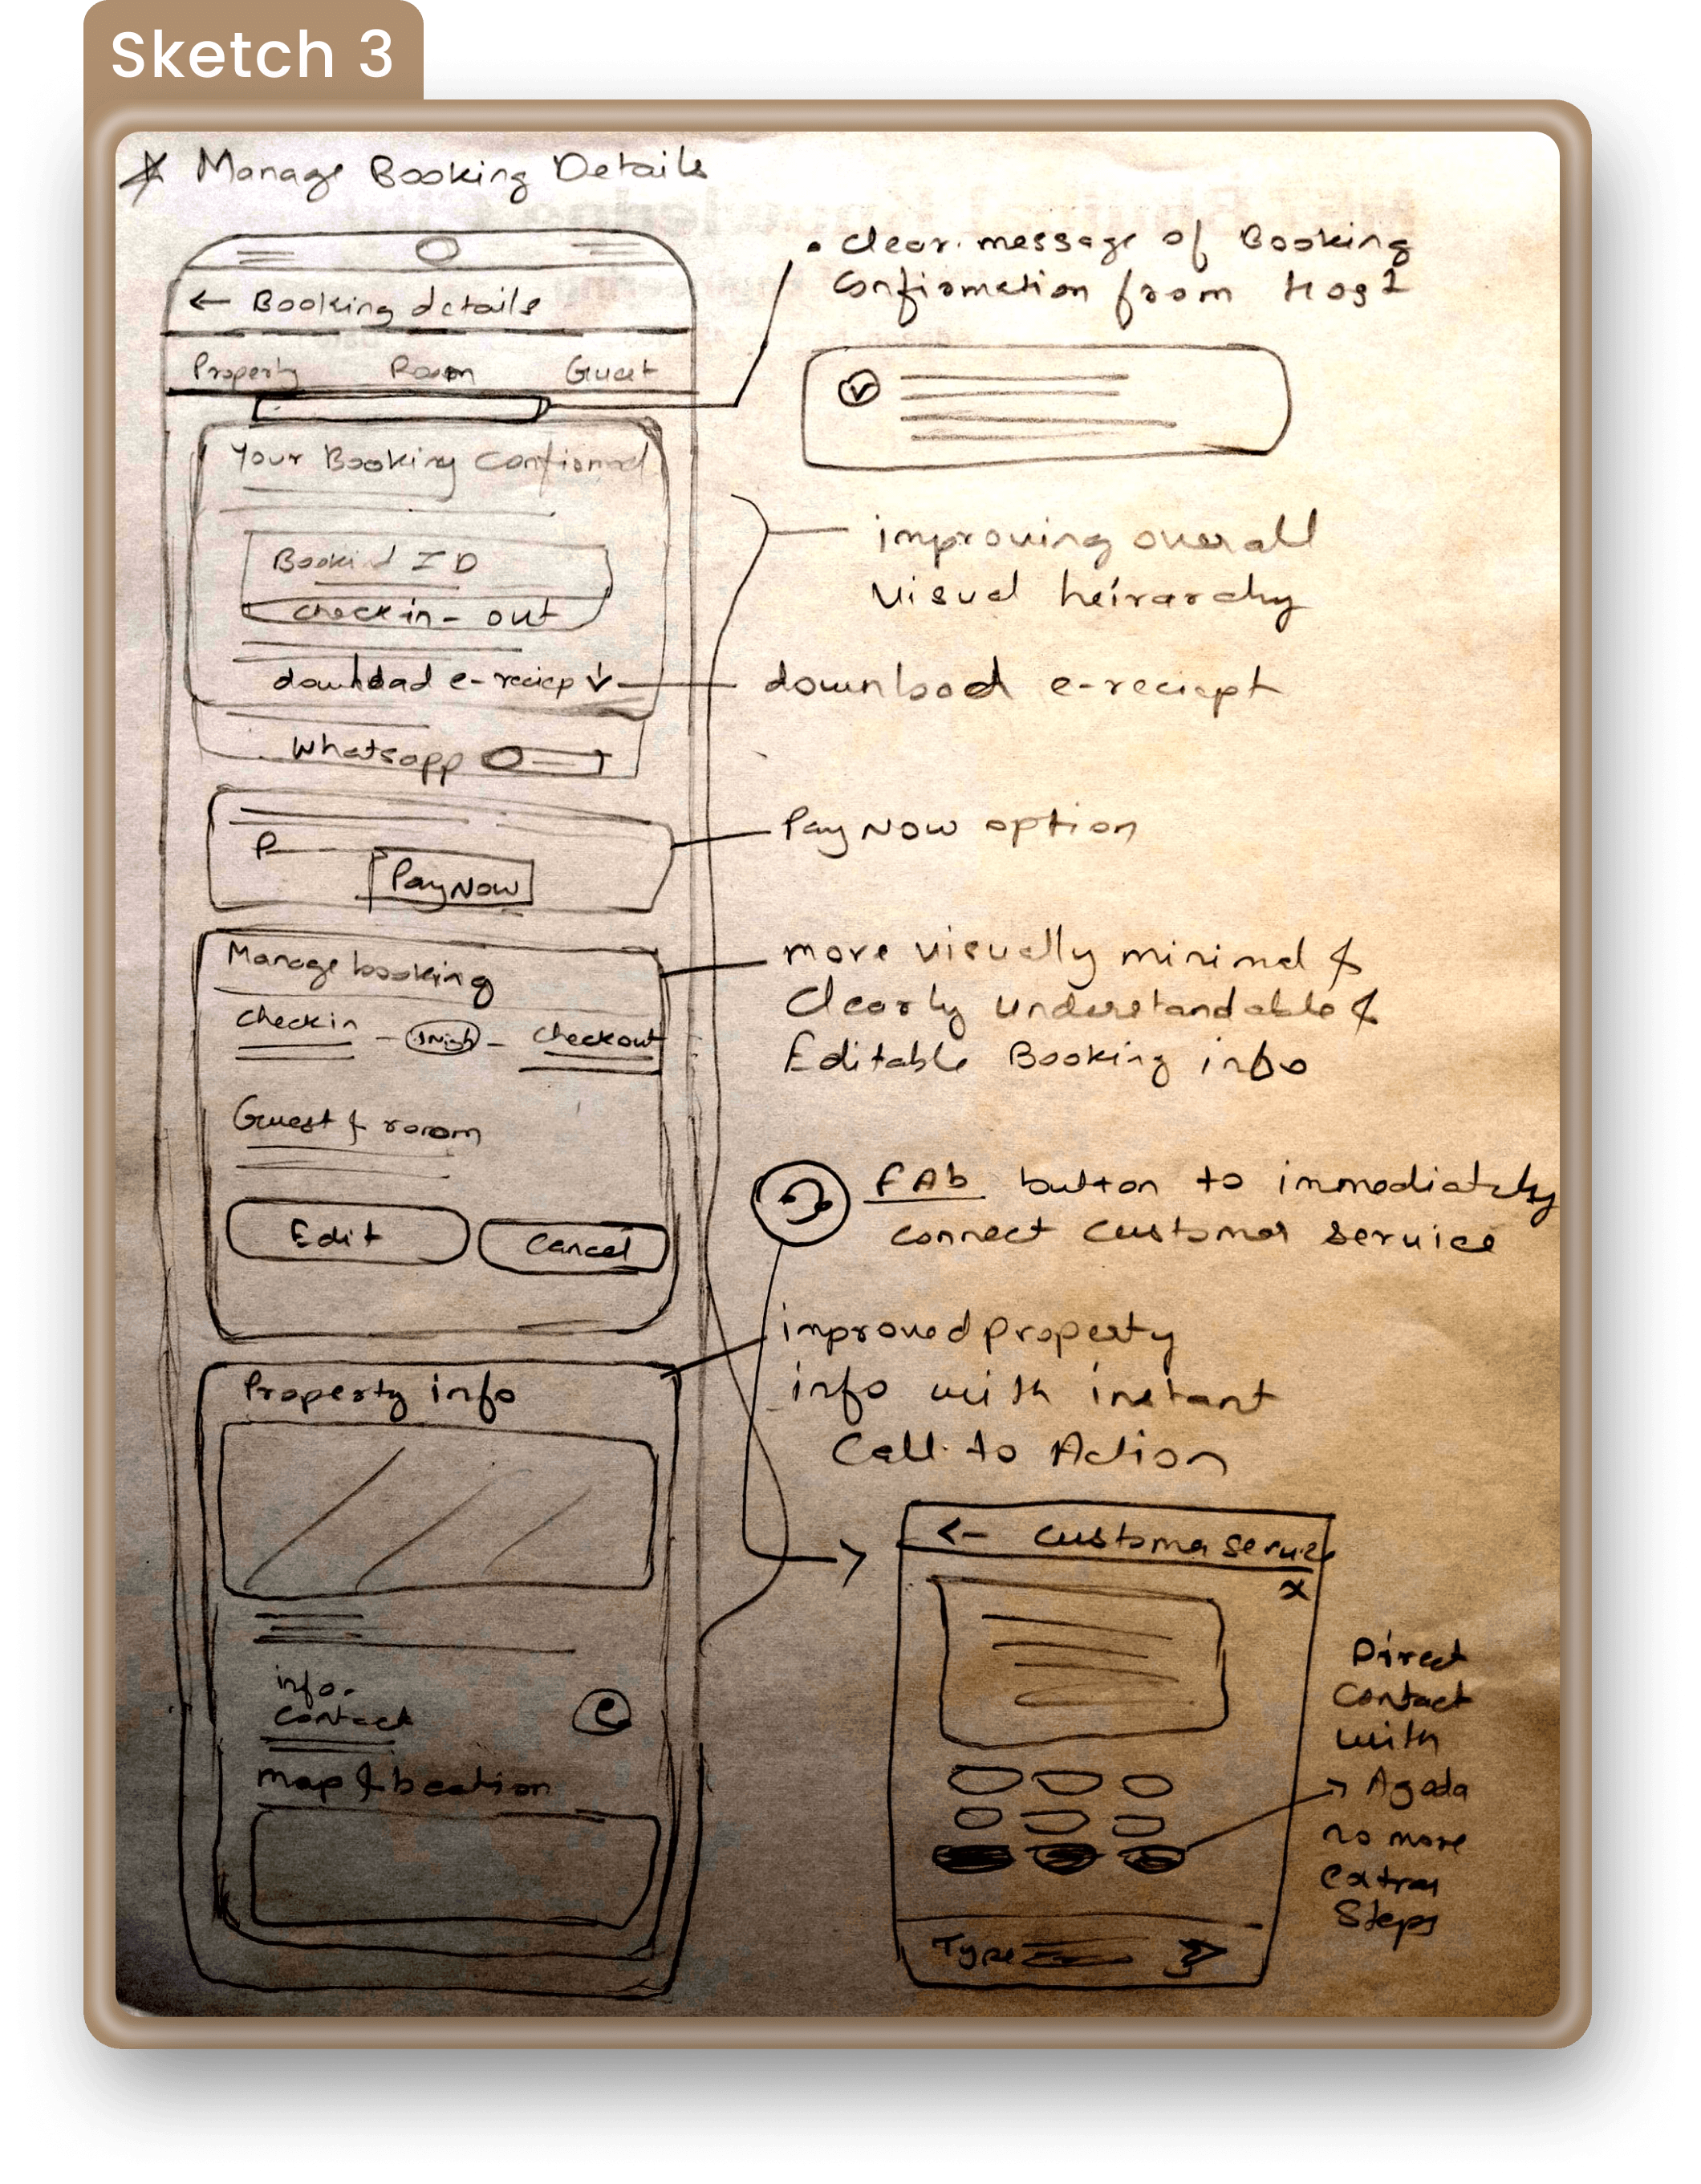 Sketch 3
Manage Booking Details
← Booking details
Property Room Guest
Your Booking Confirmed
Booking ID
Check in - out
download e-reciep ↓
Whatsapp
P
Pay Now
Manage booking
Check in - 1 Nigh - Checkout
Guest & room
Edit Cancel
Property info
info.
Contact
map & location
• Clear message of Booking
Confirmation from Host
improving overall
visual heirarchy
download e-reciept
Pay Now option
more visually minimal &
Clearly understandable &
Editable Booking info
FAb button to immediately
connect customer service
improved property
info with instant
Call to Action
← customer service
x
Type
Direct
Contact
with
→ Agoda
no more
extra
Steps